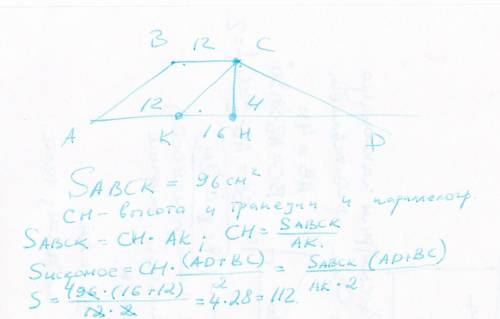 B 12 C
12 4
A K 16 H D
SABCK = 96 см²
CH - высота и трапеции и параллелогр.
SABCK = CH · AK ; CH = SABCK / AK.
Sисканое = CH · (AD+BC) / 2 = SABCK (AD+BC) / AK · 2
S = 496 · (16+12) / 12 · 2 = 4 · 28 = 112